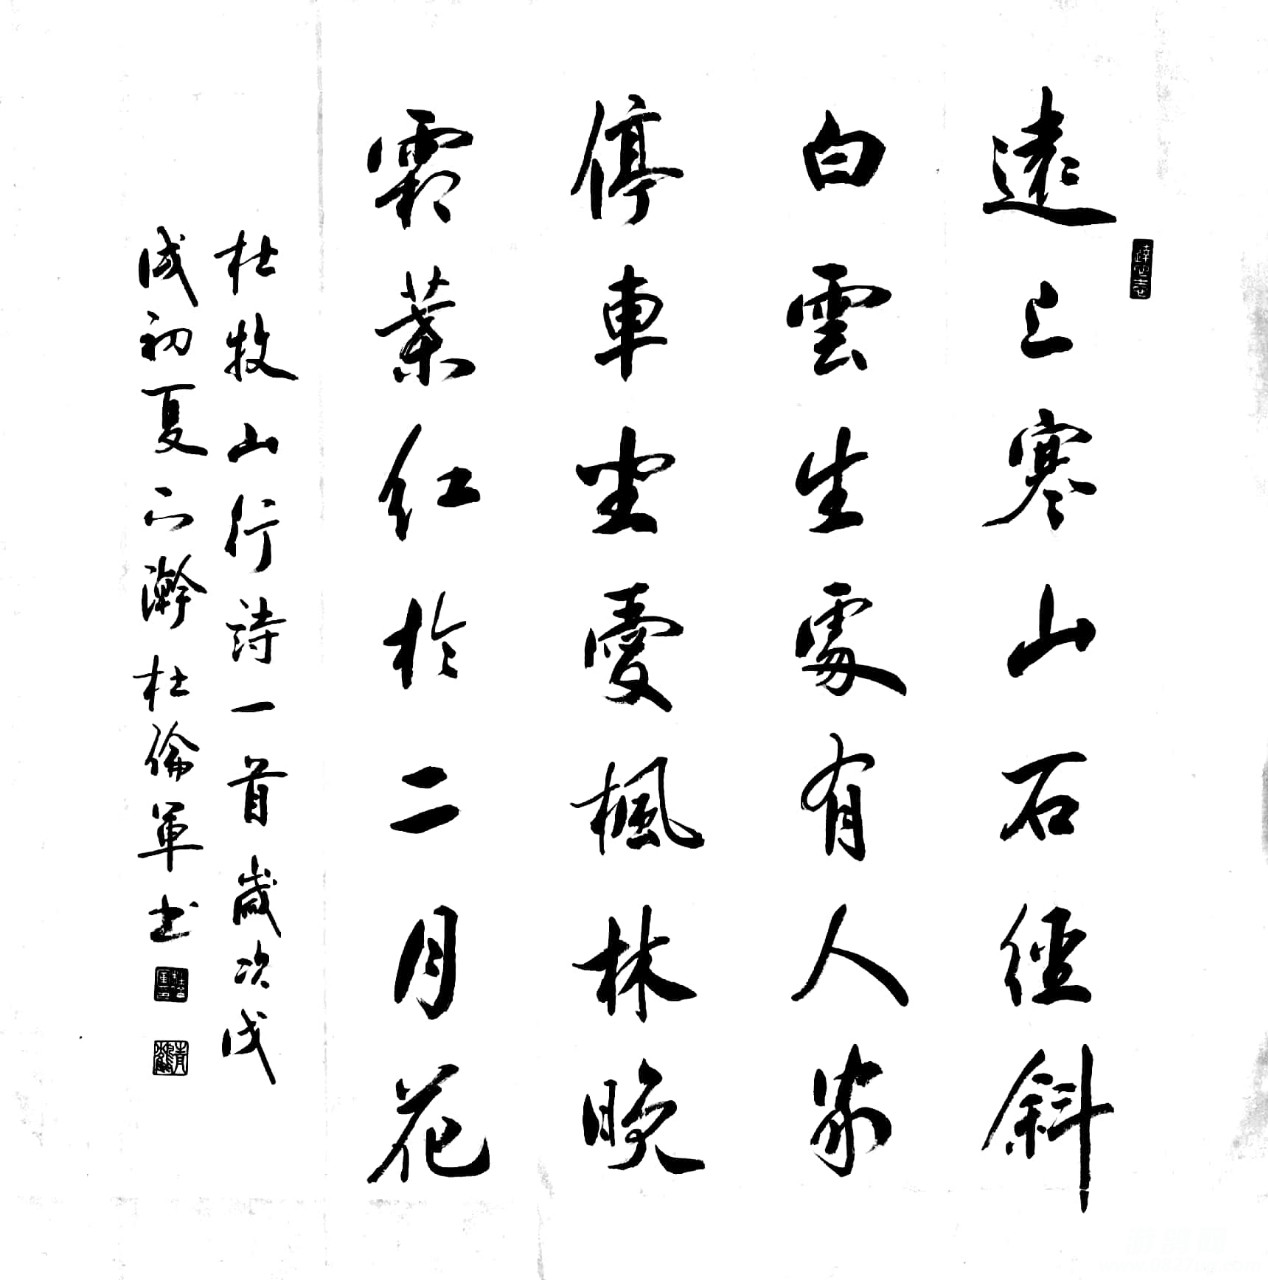 遠上寒山石徑斜
白雲生處有人家
停車坐愛楓林晚
霜葉紅於二月花
杜牧山行詩一首歲次戊
戌初夏杜倫軍書